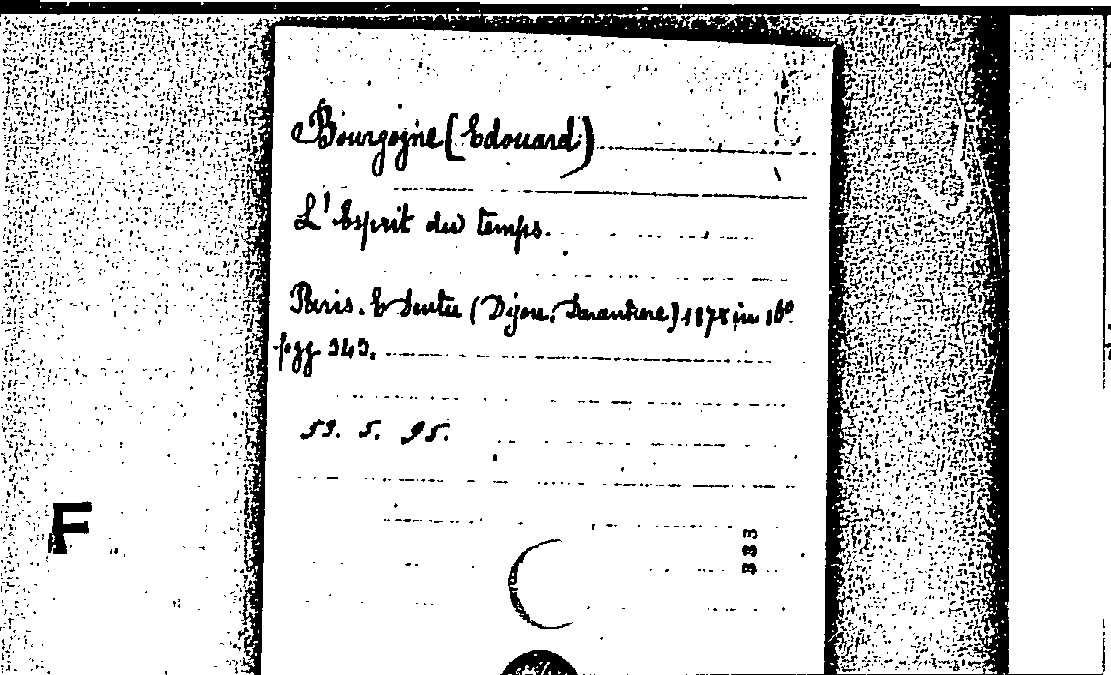 Bourgogne (Edouard)
L'Esprit du temps.
Paris. E Dentu (Dijon. Darantiere) 1878 in 16º
pgg 345.
59. 5. 95.
333
F